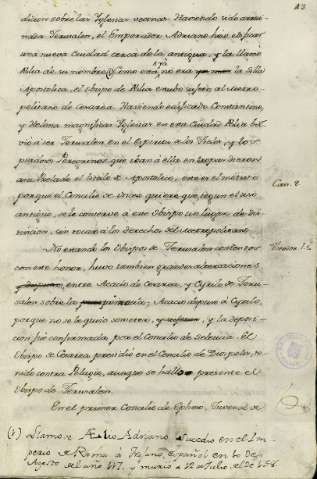 43
diccion sobre las Iglesias vecinas. Haviendo sido arrui-
nada Jerusalen, el Emperador Adriano hizo edificar
una nueva Ciudad cerca de la antigua, y la llamó
Ælia de su nombre. Como era, no era la Silla
Apostolica, el obispo de Ælia estubo sujeto al metro-
politano de Cesaréa. Haviendo edificado Constantino,
y Helena magnificas Iglesias en esta Ciudad Ælia bol-
vió a ser Jerusalen en el Espiritu de los Fieles, y los
piadosos Peregrinos que iban á ella en tropas dieron
á su Prelado el titulo de Apostolico, este es el motivo
porque el Concilio de Nicea quiere que segun el uso
antiguo, se le conserve a este Obispo un lugar de dis-
tincion, sin tocar á los derechos del metropolitano.
Can. 7
No estando los Obispos de Jerusalen contentos
con este honor, huvo tambien grandes alteraciones
entre Acacio de Cesarea, y Cyrilo de Jeru-
salen sobre la primacia; Acacio depuso á Cyrilo,
porque no se le quiso someter, y la deposi-
cion fué confirmada por el Concilio de Seleucia. El
Obispo de Cesarea presidió en el Concilio de Diospolis, te-
nido contra Pelagio, aunque se halló presente el
Obispo de Jerusalen.
En el primer Concilio de Epheso, Juvenal de
(1) Llamose Ælio Adriano. Sucedio en el Im-
perio de Roma á Trajano, Español en 10 de
Agosto del año 117, y murio a 12 de Julio, el de 138.